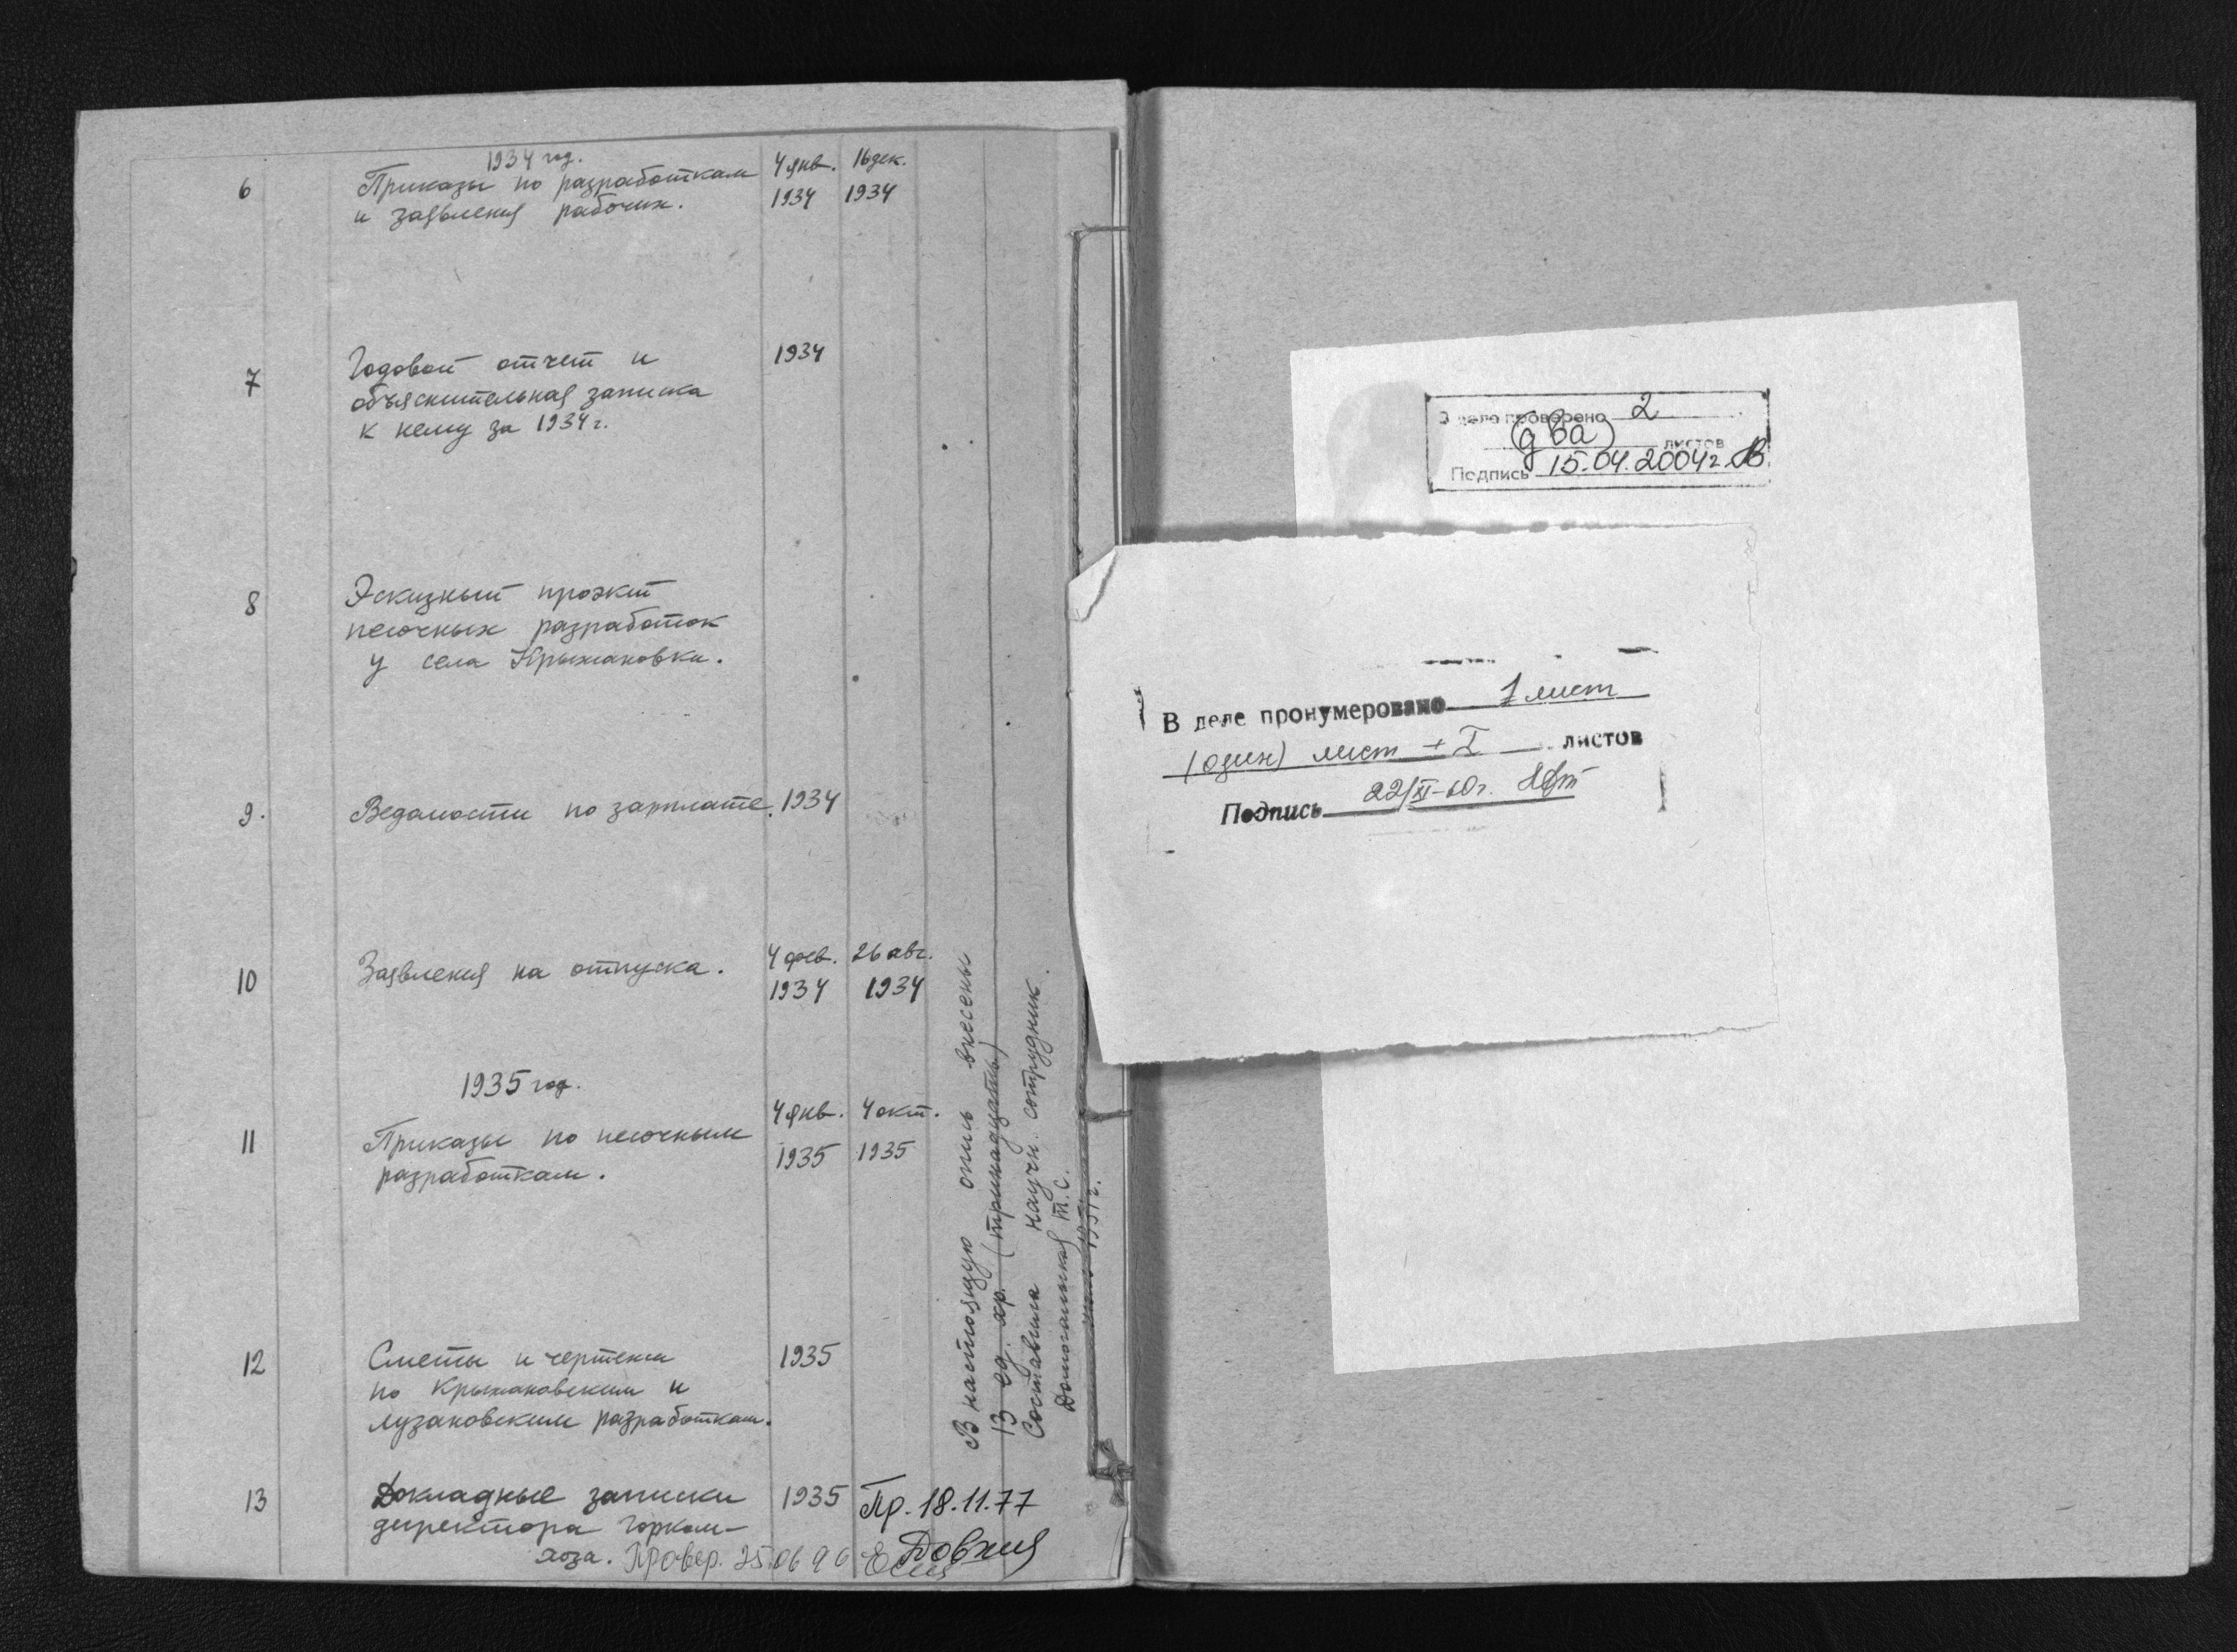 1934 год.
6 Приказы по разработкам 4 янв. 16 дек.
и заявления рабочих. 1934 1934
7 Годовой отчет и 1934
объяснительная записка
к нему за 1934 г.
8 Эскизный проэкт
песочных разработок
у села Крыжановки.
9. Ведомости по зарплате. 1934
10 Заявления на отпуска. 4 фев. 26 авг.
1934 1934
1935 год.
11 Приказы по песочным 4 янв. 4 окт.
разработкам. 1935 1935
12 Сметы и чертежи 1935
по Крыжановским и
лузановским разработкам.
13 Докладные записки 1935 Пр. 18.11.77
директора Горком-
хоза. Провер. 25.06 96
В настоящую опись внесены
13 ед. хр. (тринадцать)
Составила научн. сотрудник
Т.С.
1951 г.
В деле проверено 2
(два) листов
Подпись 15.04.2004г.
В деле пронумеровано 1 лист
(один) лист + I листов
Подпись 22/XI-60г.